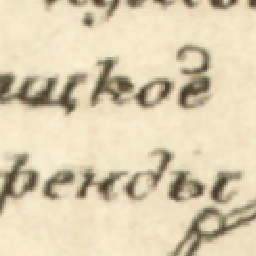 ицкое
фенды